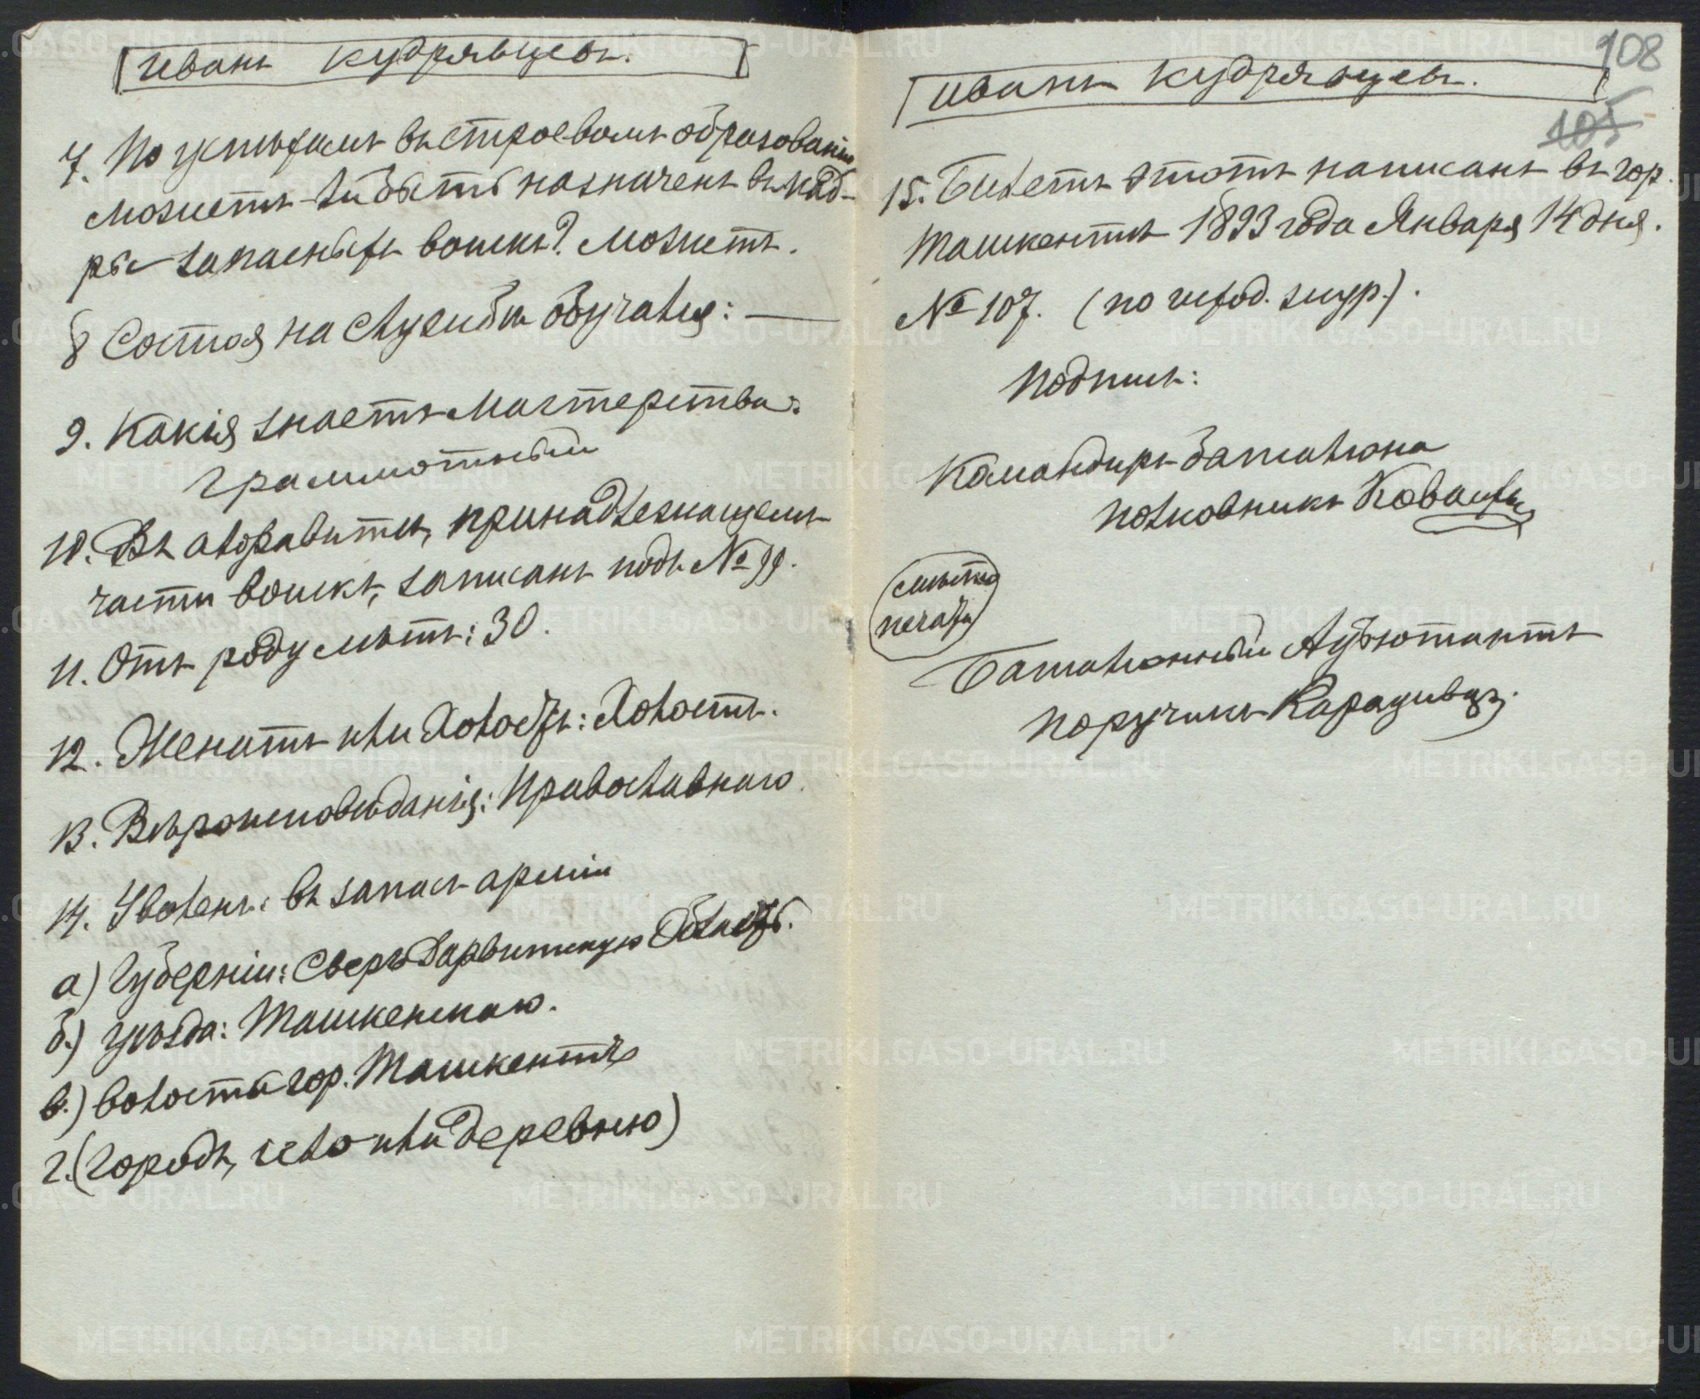 Иванъ Кудрявцевъ.
7. По успѣхамъ въ строевомъ образованiи
можетъ-ли быть назначенъ въ кад-
ры запасныхъ войскъ? Можетъ.
8 Состоя на службѣ обучался: —
9. Какiя знаетъ мастерства:
Грамотный
10. Въ алфавитѣ, принадлежащемъ
части войскъ, записанъ подъ № 99.
11. Отъ роду лѣтъ: 30.
12. Женатъ или холостъ: Холостъ.
13. Вѣроисповѣданiя: Православнаго.
14. Уволенъ: въ запасъ армiи
а) Губернiи: Сверъ Дарьинскую Область.
б.) уѣзда: Ташкенскаго.
в.) волости гор. Ташкентъ
г. (городъ, село или деревню)
108
Иванъ Кудрявцевъ.
105
15. Билетъ этотъ написанъ въ гор.
Ташкентѣ 1893 года Января 14 дня.
№ 107. (по исход. жур.).
Подпись:
Командиръ баталiона
полковникъ
мѣсто
печати
Баталiонный Адъютантъ
поручикъ
METRIKI.GASO-URAL.RU